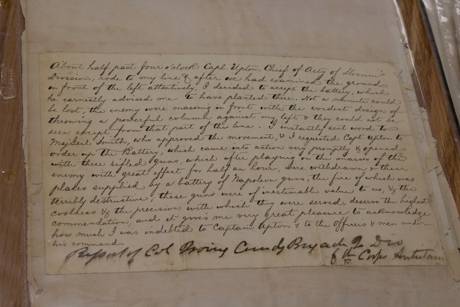 About half past four o'clock Capt. Upton, Chief of Arty of Slocum's
Division, rode to my line & after we had examined the ground
in front of the left attentively, I decided to accept the battery, which
he earnestly advised me to have planted there. Not a minute could
be lost, the enemy were massing in front with the evident design of
throwing a powerful column against my left & they could not be
seen except from that part of the line. I instantly sent word to
Maj Genl Smith, who approved the movement, & I required Capt Upton to
order up the Battery, which came into action very promptly & opened
with three rifled guns, which after playing on the masses of the
enemy with great effect for half an hour, were withdrawn & their
places supplied by a battery of Napoleon guns, the fire of which was
terribly destructive. These guns were of inestimable value to us, & the
coolness & the precision with which they were served deserve the highest
commendation, and it gives me very great pleasure to acknowledge
how much I was indebted to Captain Upton & to the officers & men under
his command.
Report of Col Irwin Comdg Brigade 2 Div
6th Corps Antietam